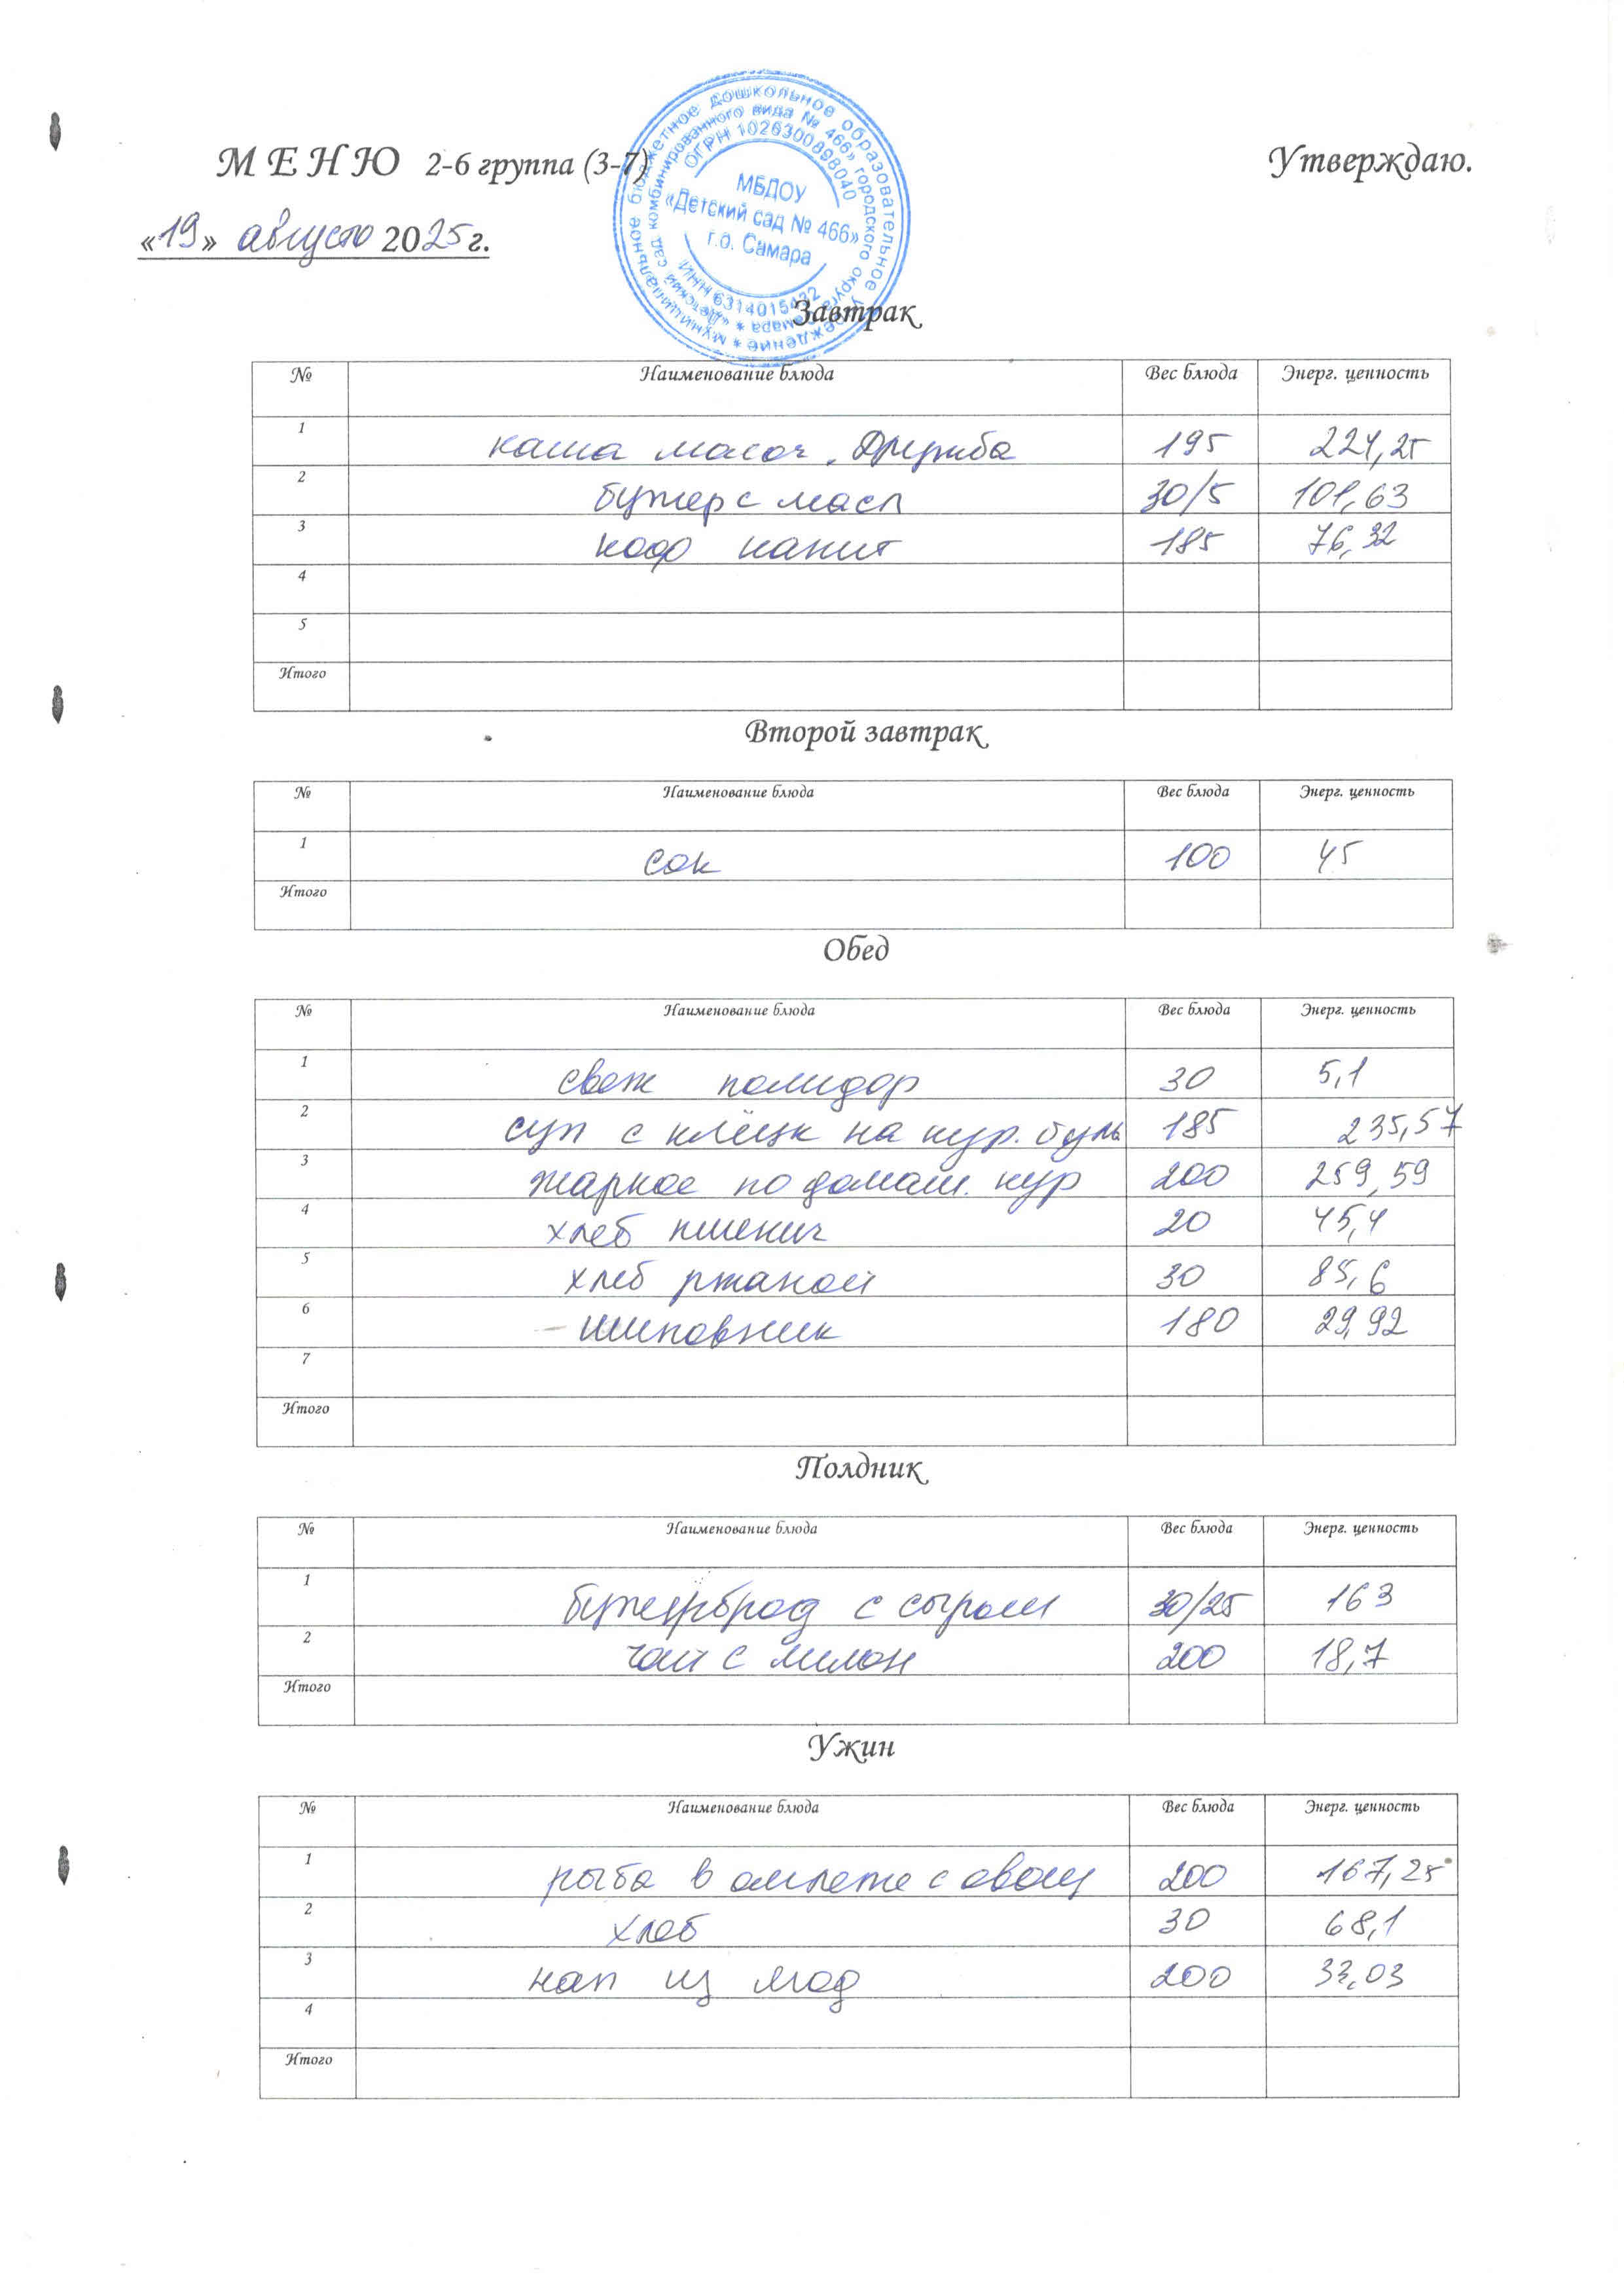 М Е Н Ю 2-6 группа (3-7)
Утверждаю.
«19» августа 2025 г.
муниципальное бюджетное дошкольное образовательное учреждение
«Детский сад комбинированного вида № 466» городского округа Самара
ОГРН 1026300898040
МБДОУ
«Детский сад № 466»
г.о. Самара
ИНН 6314015432
Завтрак
№ Наименование блюда Вес блюда Энерг. ценность
1 каша молоч. Дружба 195 224,25
2 бутер с масл 30/5 101,63
3 коф напит 185 76,32
4
5
Итого
Второй завтрак
№ Наименование блюда Вес блюда Энерг. ценность
1 сок 100 45
Итого
Обед
№ Наименование блюда Вес блюда Энерг. ценность
1 свеж помидор 30 5,1
2 суп с клёцк на кур. буль 185 235,57
3 жаркое по домаш. кур 200 259,59
4 хлеб пшенич 20 45,4
5 хлеб ржаной 30 85,6
6 шиповник 180 29,92
7
Итого
Полдник
№ Наименование блюда Вес блюда Энерг. ценность
1 бутерброд с сыром 30/25 163
2 чай с лимон 200 18,7
Итого
Ужин
№ Наименование блюда Вес блюда Энерг. ценность
1 рыба в омлете с овощ 200 167,25
2 хлеб 30 68,1
3 нап из ягод 200 33,03
4
Итого